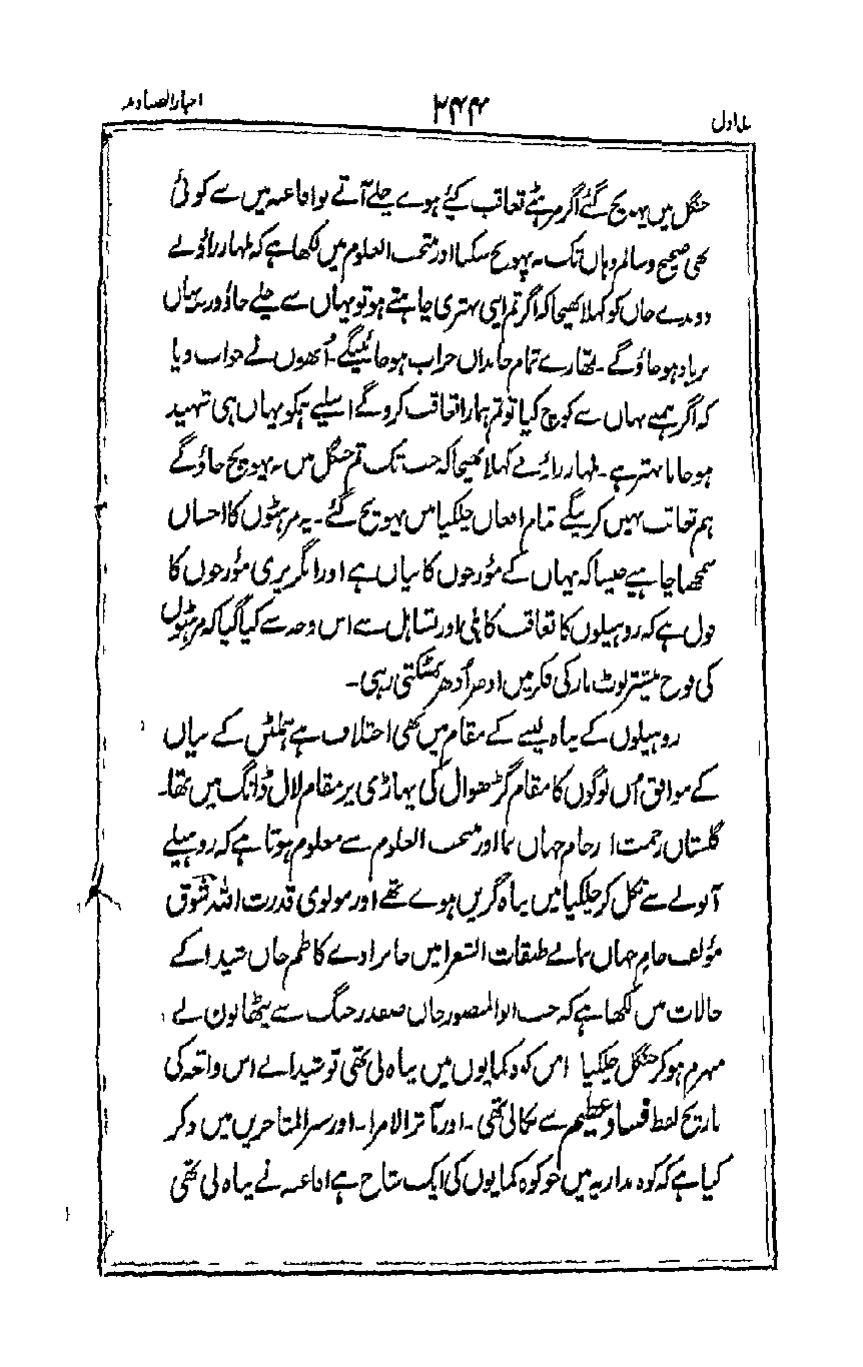 اخبار الصنادید
۲۴۴
جلد اول
جنگل میں پہونچ گئے اگر مرہٹے تعاقب کئے ہوے چلے آتے تو افاغنہ میں سے کوئی
بھی صحیح و سالم وہاں تک نہ پہونچ سکتا اور منتخب العلوم میں لکھا ہے کہ ملہار راؤ نے
دوندے خاں کو کہلا بھیجا کہ اگر تم اپنی بہتری چاہتے ہو تو یہاں سے چلے جاؤ ورنہ یہاں
برباد ہو جاؤ گے ۔ تمھارے تمام خاندان خراب ہو جائینگے ۔ اُنھوں نے جواب دیا
کہ اگر ہمنے یہاں سے کوچ کیا تو تم ہمارا تعاقب کرو گے اسلیے ہمکو یہاں ہی شہید
ہو جانا بہتر ہے ۔ ملہار راؤ نے کہلا بھیجا کہ جب تک تم جنگل میں نہ پہونچ جاؤ گے
ہم تعاقب نہیں کرینگے تمام افغان چلکیا میں پہونچ گئے ۔ یہ مرہٹوں کا احسان
سمجھنا چاہیے جیسا کہ یہاں کے مؤرخوں کا بیان ہے اور انگریزی مؤرخوں کا
قول ہے کہ روہیلوں کا تعاقب کاہلی اور تساہل سے اس وجہ سے کیا گیا کہ مرہٹوں
کی فوج بیشتر لوٹ مار کی فکر میں ادھر اُدھر بھٹکتی رہی ۔
روہیلوں کے پناہ لینے کے مقام میں بھی اختلاف ہے ہملٹن کے بیان
کے موافق اُن لوگوں کا مقام گڑھوال کی پہاڑی پر مقام لال ڈانگ میں تھا ۔
گلستان رحمت اور جام جہاں نما اور منتخب العلوم سے معلوم ہوتا ہے کہ روہیلے
آنولے سے نکل کر چلکیا میں پناہ گزیں ہوے تھے اور مولوی قدرت اللہ شوق
مؤلف جام جہاں نما نے طبقات الشعرا میں صاحبزادے کاظم خاں شیدا کے
حالات میں لکھا ہے کہ جب ابوالمنصور خاں صفدر جنگ سے پٹھانوں نے
منہزم ہو کر جنگل چلکیا دامن کوہ کمایوں میں پناہ لی تھی تو شیدا نے اس واقعہ کی
تاریخ لفظ فساد عظیم سے نکالی تھی ۔ اور مآثر الامرا ۔ اور سیر المتاخرین میں ذکر
کیا ہے کہ کوہ مداریہ میں جو کوہ کمایوں کی ایک شاخ ہے افاغنہ نے پناہ لی تھی